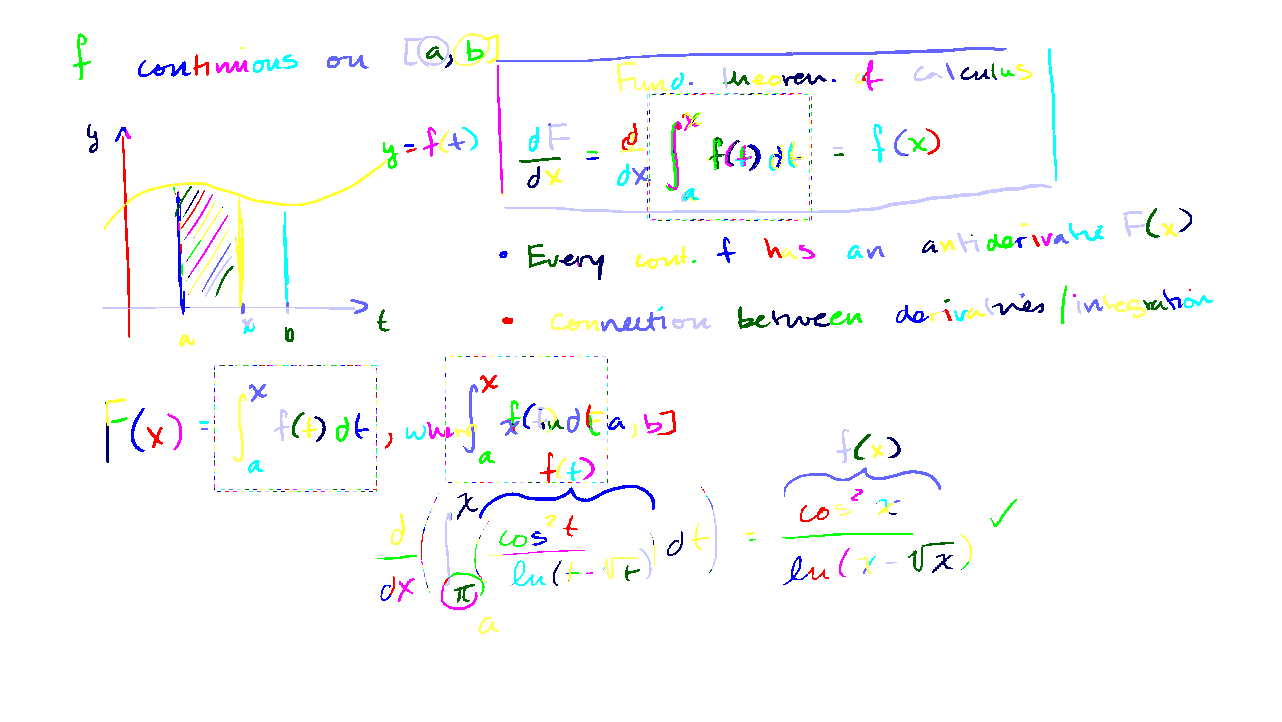 f continuous on [a, b]
Fund. theorem. of calculus
dF/dx = d/dx ∫_a^x f(t) dt = f(x)
y
y = f(t)
a x b t
• Every cont. f has an antiderivative F(x)
• Connection between derivatives / integration
F(x) = ∫_a^x f(t) dt, where x in [a, b]
∫_a^x f(t) dt
f(t) f(x)
d/dx (∫_π^x (cos² t / ln(t - √t)) dt) = cos² x / ln(x - √x) ✓
a